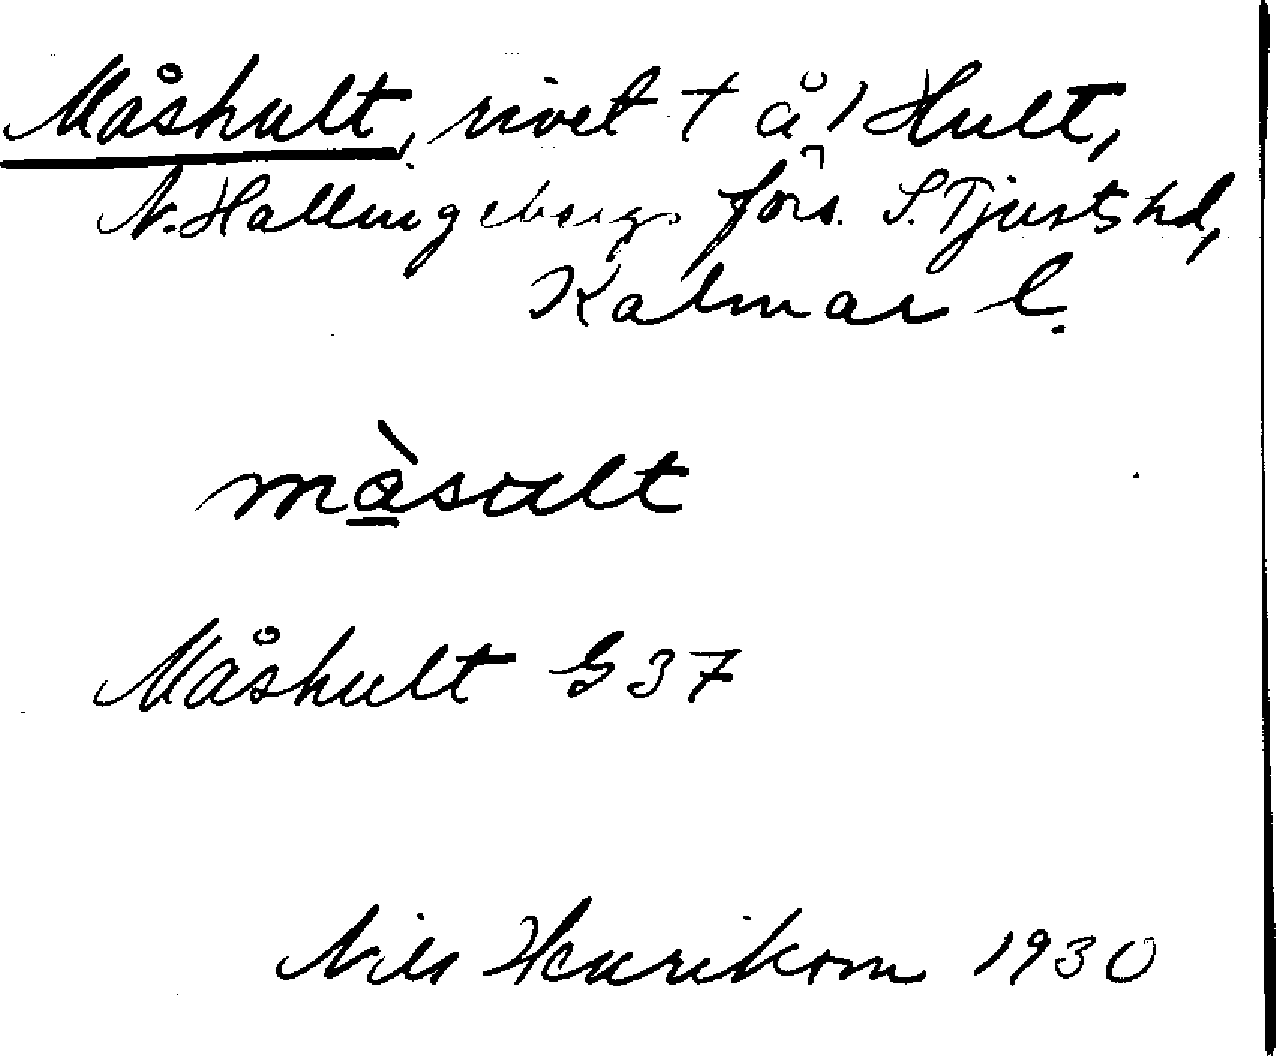 Måshult, rivet t å 1 Hult,
N. Hallingebergs förs. S. Tjusts hd,
Kalmar l.
måsult
Måshult G 37
Nils Henrikson 1930